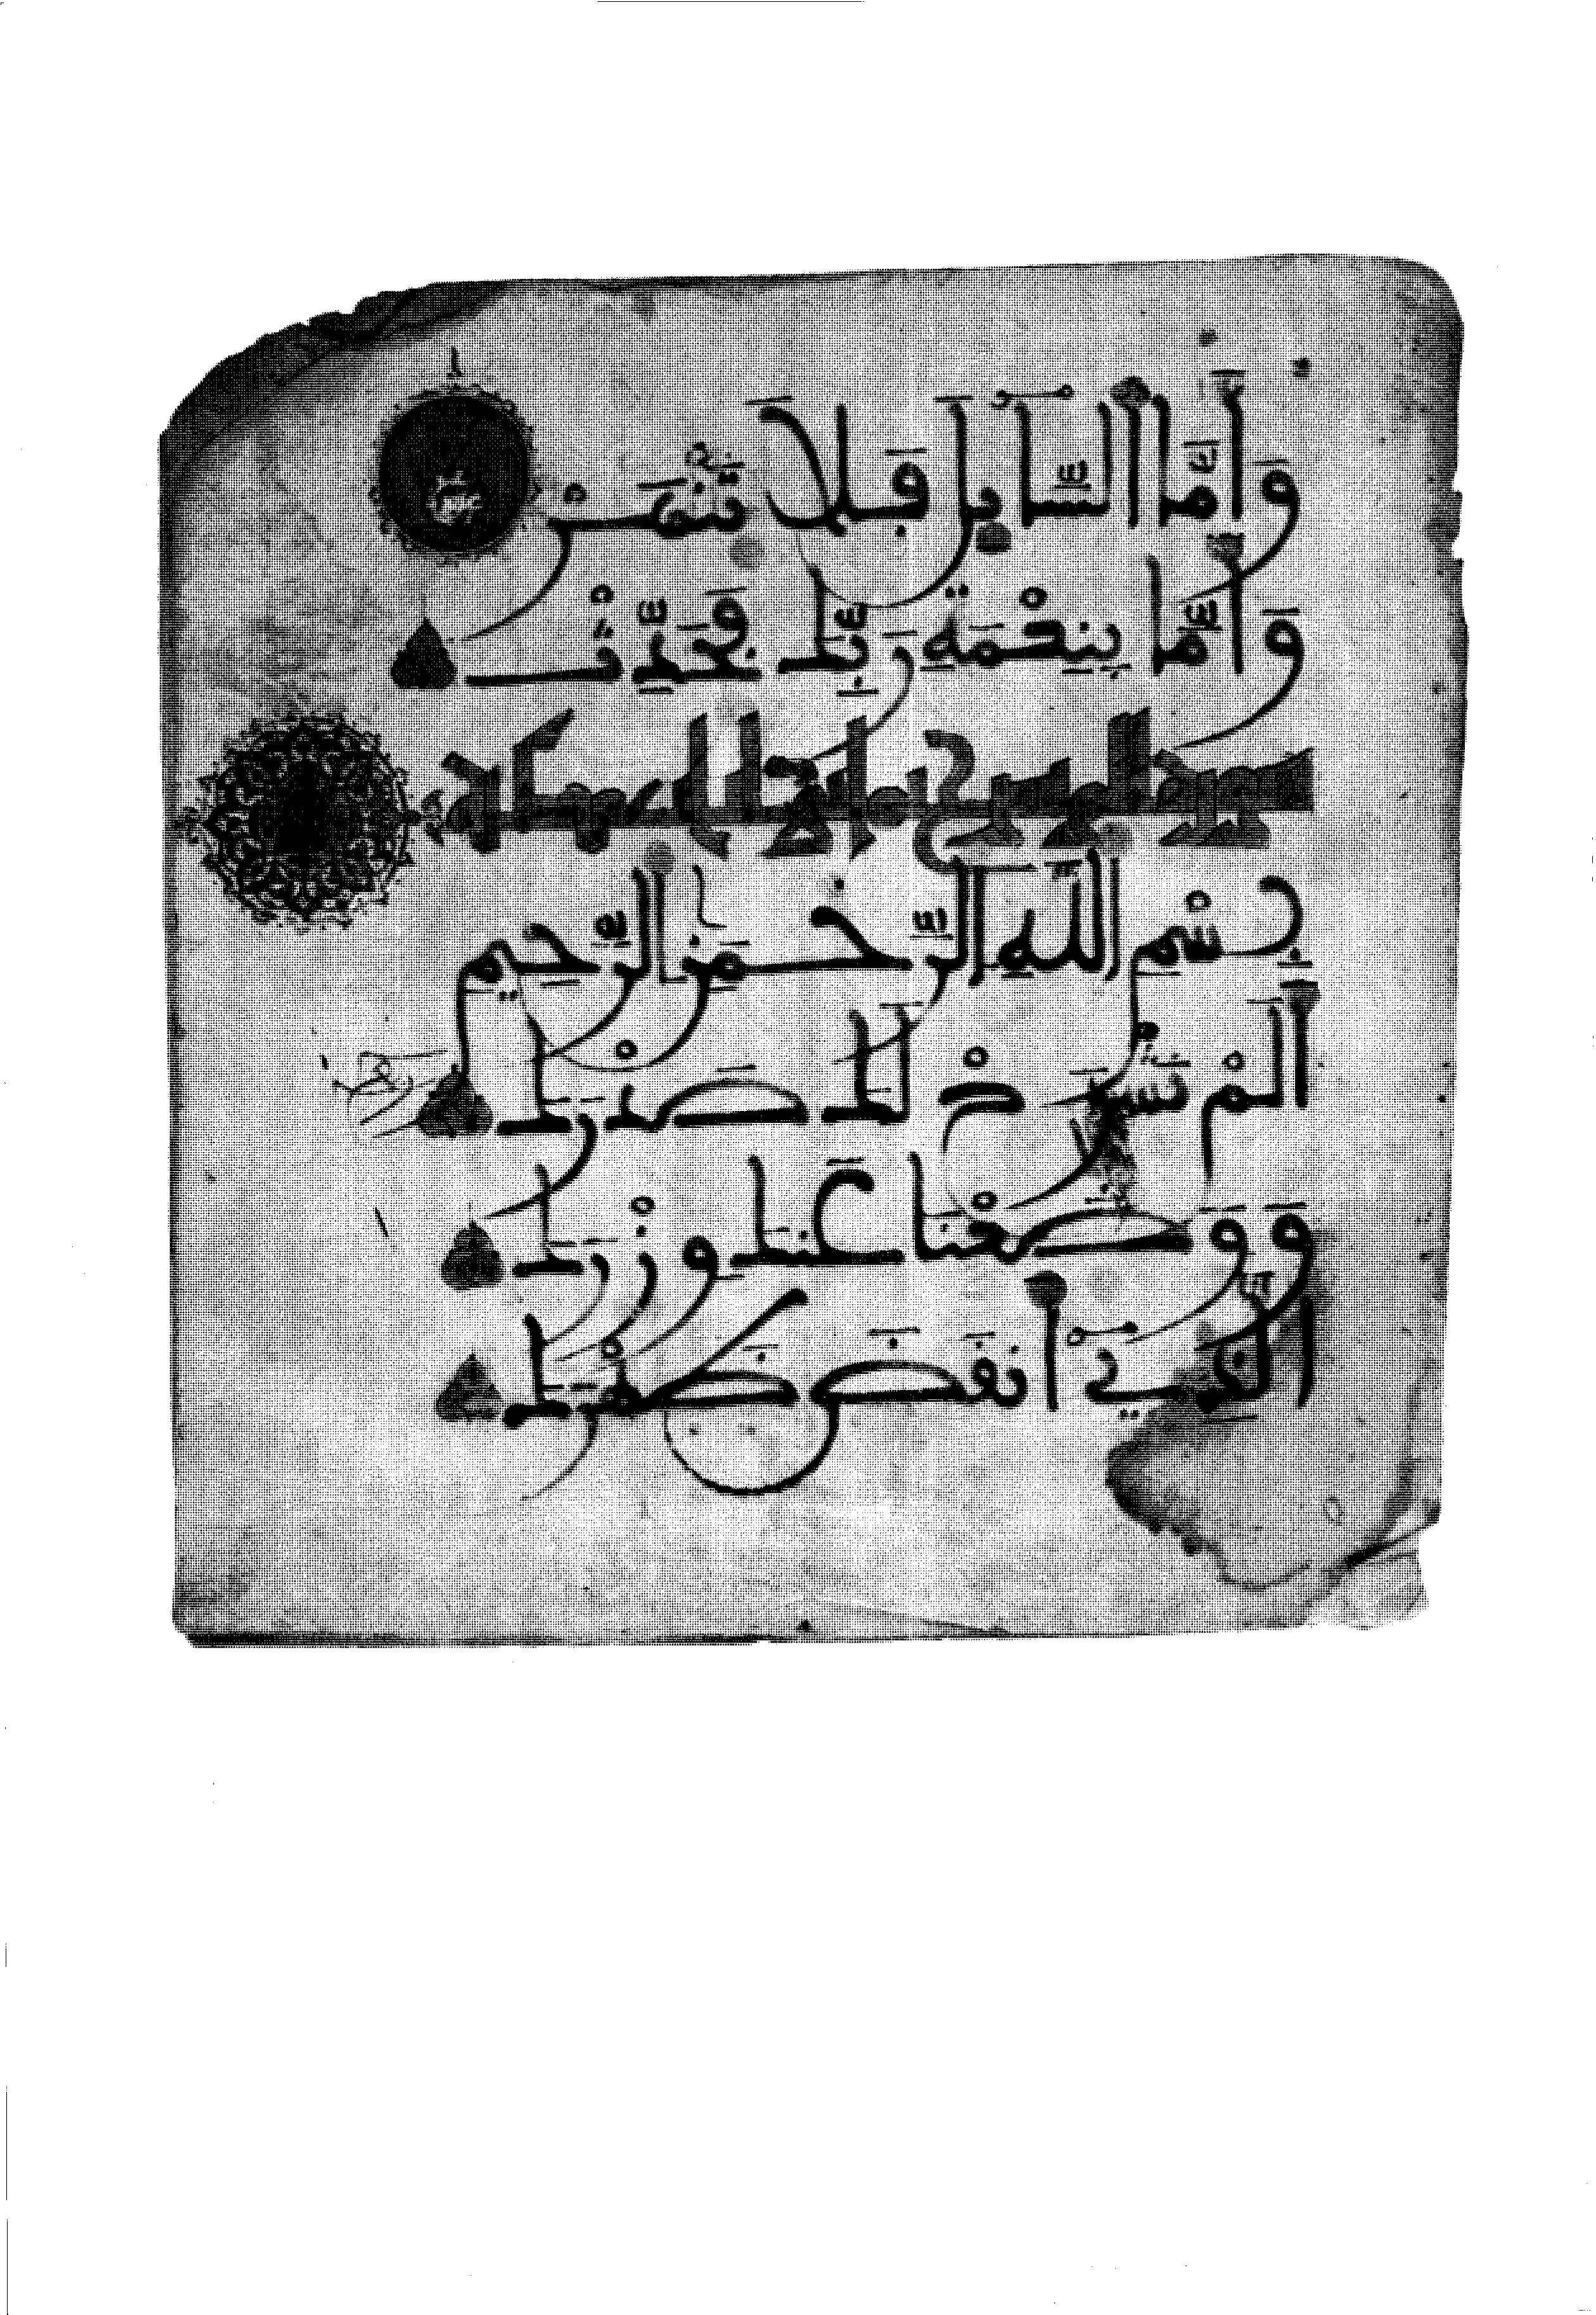 وَأَمَّا السَّآيِلَ فَلَا تَنْهَرْ
وَأَمَّا بِنِعْمَةِ رَبِّكَ فَحَدِّثْ
سورة الم نشرح
بِسْمِ اللَّهِ الرَّحْمَنِ الرَّحِيمِ
أَلَمْ نَشْرَحْ لَكَ صَدْرَكَ
وَوَضَعْنَا عَنكَ وِزْرَكَ
الَّذِيٓ أَنقَضَ ظَهْرَكَ